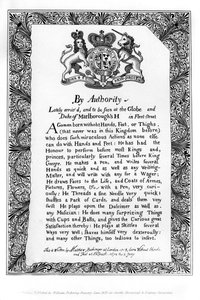 By Authority
Lately arriv'd, and to be seen at the Globe and
Duke of Marlborough's H in Fleet-street
A German born without Hands, Feet, or Thighs,
(that never was in this Kingdom before)
who does such miraculous Actions as none else
can do with Hands and Feet: He has had the
Honour to perform before most Kings and
princes, particularly several Times before King
George. He makes a Pen, and Writes several
Hands as quick and as well as any writing
Master, and will write with any for a Wager;
He draws Faces to the Life, and Coats of Arms,
Pictures, Flowers, &c. with a Pen, very curi-
ously: He Threads a fine Needle very quick;
Shuffles a Pack of Cards, and deals them very
swift. He plays upon the Dulcimer as well as
any Musician; He does many surprizing Things
with Cups and Balls, and gives the Curious great
Satisfaction thereby: He plays at Skittles several
Ways very well; shaves himself very dexterously;
and many other Things, too tedious to insert.